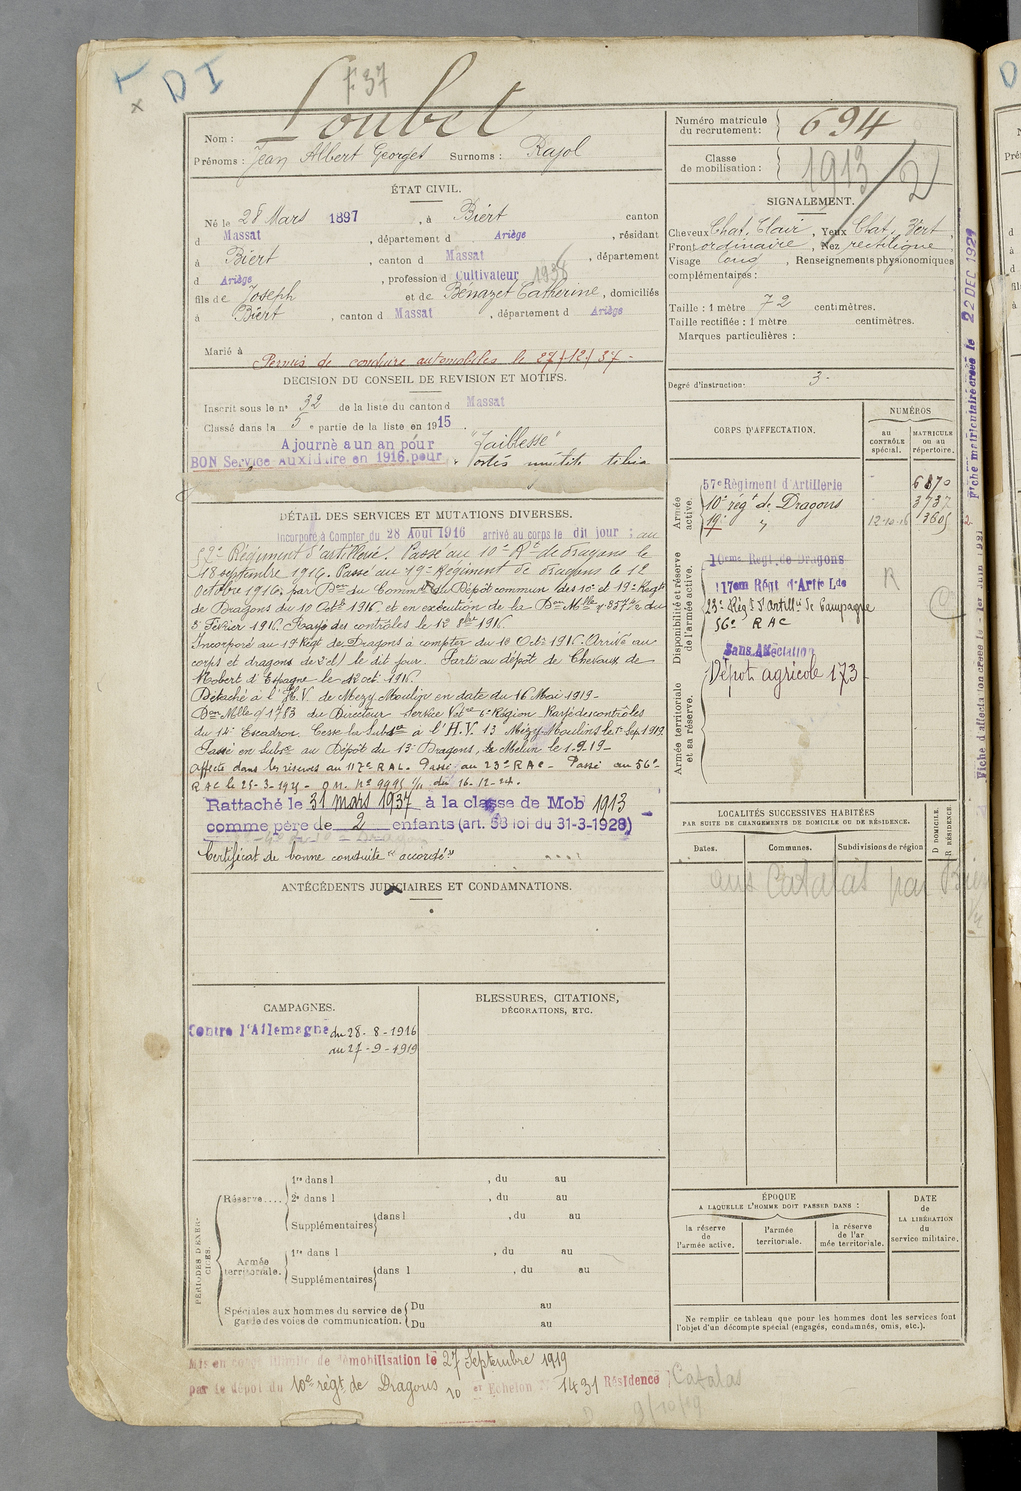 D I
F 37
Nom : Loubet
Prénoms : Jean Albert Georges Surnoms : Rajol
Numéro matricule du recrutement : 694
Classe de mobilisation : 1913/2
ÉTAT CIVIL.
Né le 28 Mars 1897, à Biert canton
d Massat, département d Ariège, résidant
à Biert, canton d Massat, département
d Ariège, profession d Cultivateur 1938
fils de Joseph et de Bénazet Catherine, domiciliés
à Biert, canton d Massat, département d Ariège
Marié à
Permis de conduire automobiles le 27/12/37
SIGNALEMENT.
Cheveux Chat. Clair, Yeux Chat. Vert
Front ordinaire, Nez rectiligne
Visage long, Renseignements physionomiques
complémentaires :
Taille : 1 mètre 72 centimètres.
Taille rectifiée : 1 mètre centimètres.
Marques particulières :
Degré d'instruction : 3
DECISION DU CONSEIL DE REVISION ET MOTIFS.
Inscrit sous le n° 32 de la liste du canton d Massat
Classé dans la 5e partie de la liste en 1915.
Ajourné a un an pour "Faiblesse"
BON Service Auxiliaire en 1916 pour
CORPS D'AFFECTATION.
NUMÉROS
au CONTRÔLE spécial.
MATRICULE ou au répertoire.
Armée active.
57e Régiment d'Artillerie 6870
10e régt de Dragons 3737
19e " 12-10-16 13605
Disponibilité et réserve de l'armée active.
10eme Regt de Dragons
117em Régt d'Artie Lde
R
23e Régt d'Artillie de Campagne
56e RAC
Sans Affectation
Armée territoriale et sa réserve.
Dépôt agricole 173
DÉTAIL DES SERVICES ET MUTATIONS DIVERSES.
Incorporé à Compter du 28 Aout 1916 arrivé au corps le dit jour ; au
57e Régiment d'artillerie. Passé au 10e Rt de dragons le
18 septembre 1916. Passé au 19e Régiment de dragons le 12
Octobre 1916, par Don du Commt du Dépôt commun des 10e et 19e Régts
de Dragons du 10 Octe 1916 et en exécution de la Don Mlle du
5 Février 1916. Rayé des contrôles le 12 8bre 1916
Incorporé au 19e Régt de Dragons à compter du 12 Octe 1916. Arrivé au
corps et dragons de 2e cl le dit jour. Parti au dépôt de Chevaux de
Mobert d'Espagne le 12 oct. 1916.
Détaché à l'H.V de Mezy Moulin en date du 16 Mai 1919 -
Don Mlle du Directeur Service Vétre 6e Région Rayé des contrôles
du 14e Escadron. Cesse la Subce à l'H.V. 13 Mézy-Moulins le 1er Sep. 1919
Passé en Subce au Dépôt du 13e Dragons, à Melun le 1.9.19 -
Affecté dans les réserves au 117e R.A.L. Passé au 23e RAC - Passé au 56e
RAC le
Rattaché le 31 mars 1937 à la classe de Mob 1913
comme père de 2 enfants (art. 58 loi du 31-3-1928)
Certificat de bonne conduite "accordé"
LOCALITÉS SUCCESSIVES HABITÉES
PAR SUITE DE CHANGEMENTS DE DOMICILE OU DE RÉSIDENCE.
Dates.
Communes.
Subdivisions de région
D DOMICILE.
R RÉSIDENCE.
aus Catalas par Biert
ANTÉCÉDENTS JUDICIAIRES ET CONDAMNATIONS.
CAMPAGNES.
Contre l'Allemagne du 28-8-1916
au 27-9-1919
BLESSURES, CITATIONS,
DÉCORATIONS, ETC.
PÉRIODES D'EXERCICES.
Réserve....
1re dans l , du au
2e dans l , du au
Supplémentaires dans l , du au
Armée territoriale.
1re dans l , du au
Supplémentaires dans l , du au
Spéciales aux hommes du service de garde des voies de communication.
Du au
Du au
ÉPOQUE
A LAQUELLE L'HOMME DOIT PASSER DANS :
la réserve de l'armée active.
l'armée territoriale.
la réserve de l'armée territoriale.
DATE de LA LIBÉRATION du service militaire.
Ne remplir ce tableau que pour les hommes dont les services font
l'objet d'un décompte spécial (engagés, condamnés, omis, etc.).
Mis en congé illimité de démobilisation le 27 Septembre 1919
par le dépôt du 10e régt de Dragons 10 er Echelon 1431 Résidence : Catalas
9/10/19
Fiche matriculaire créée le 22 DEC 1929
Fiche d'affectation créée le